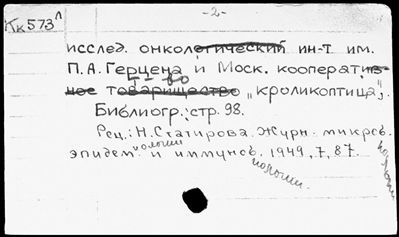 Кк573л
-2-
исслед. онкологический ин-т им.
П.А. Герцена и Моск. кооператив-
ное товарищество „кроликоптица".
т-во
Библиогр.: стр. 98.
Рец.: Н. Статирова. Журн. микроб.
эпидем. и иммунов. 1949, 7, 87.